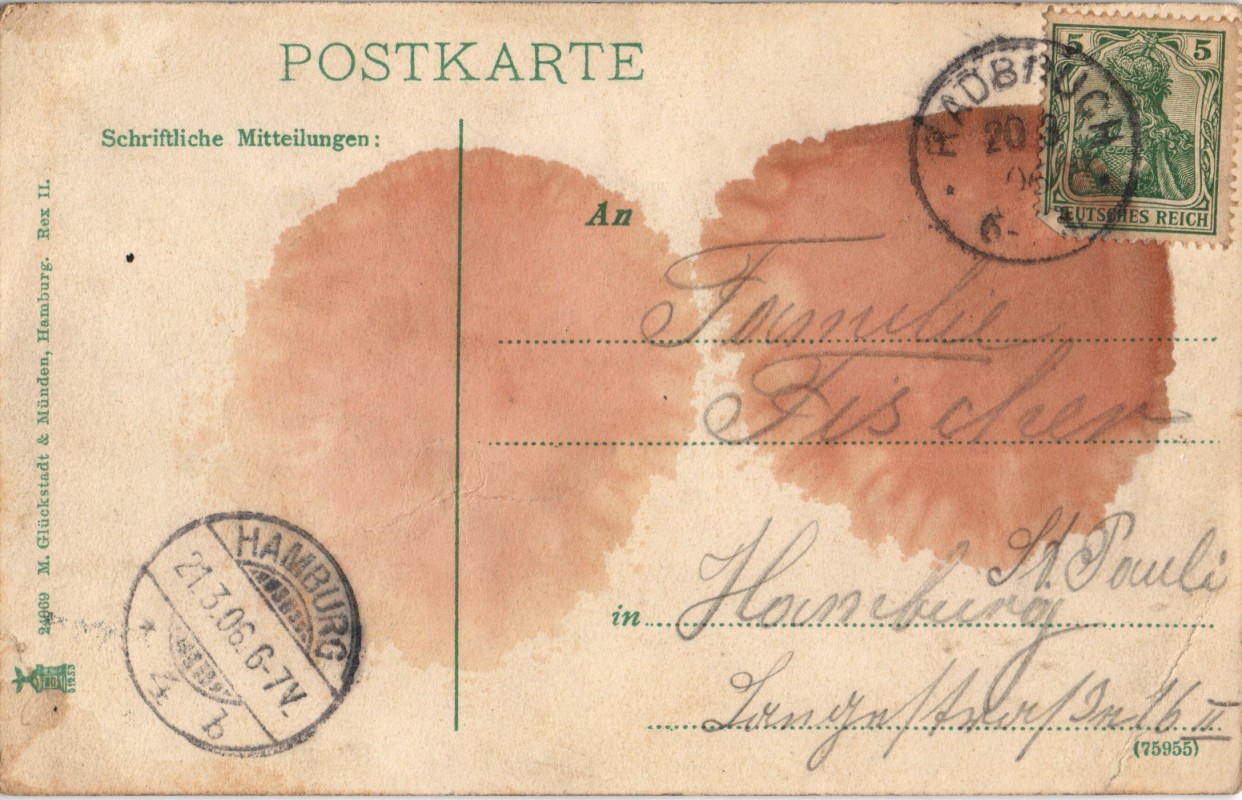 POSTKARTE
Schriftliche Mitteilungen:
24969 M. Glückstadt & Münden, Hamburg. Rex II.
51953
5 5
DEUTSCHES REICH
RADBRUCH
20 3
06
6-
An
Familie
Fischer
St. Pauli
in Hamburg
Langestraße 16 II
(75955)
HAMBURG
21.3.06.6-7V.
* 4 b